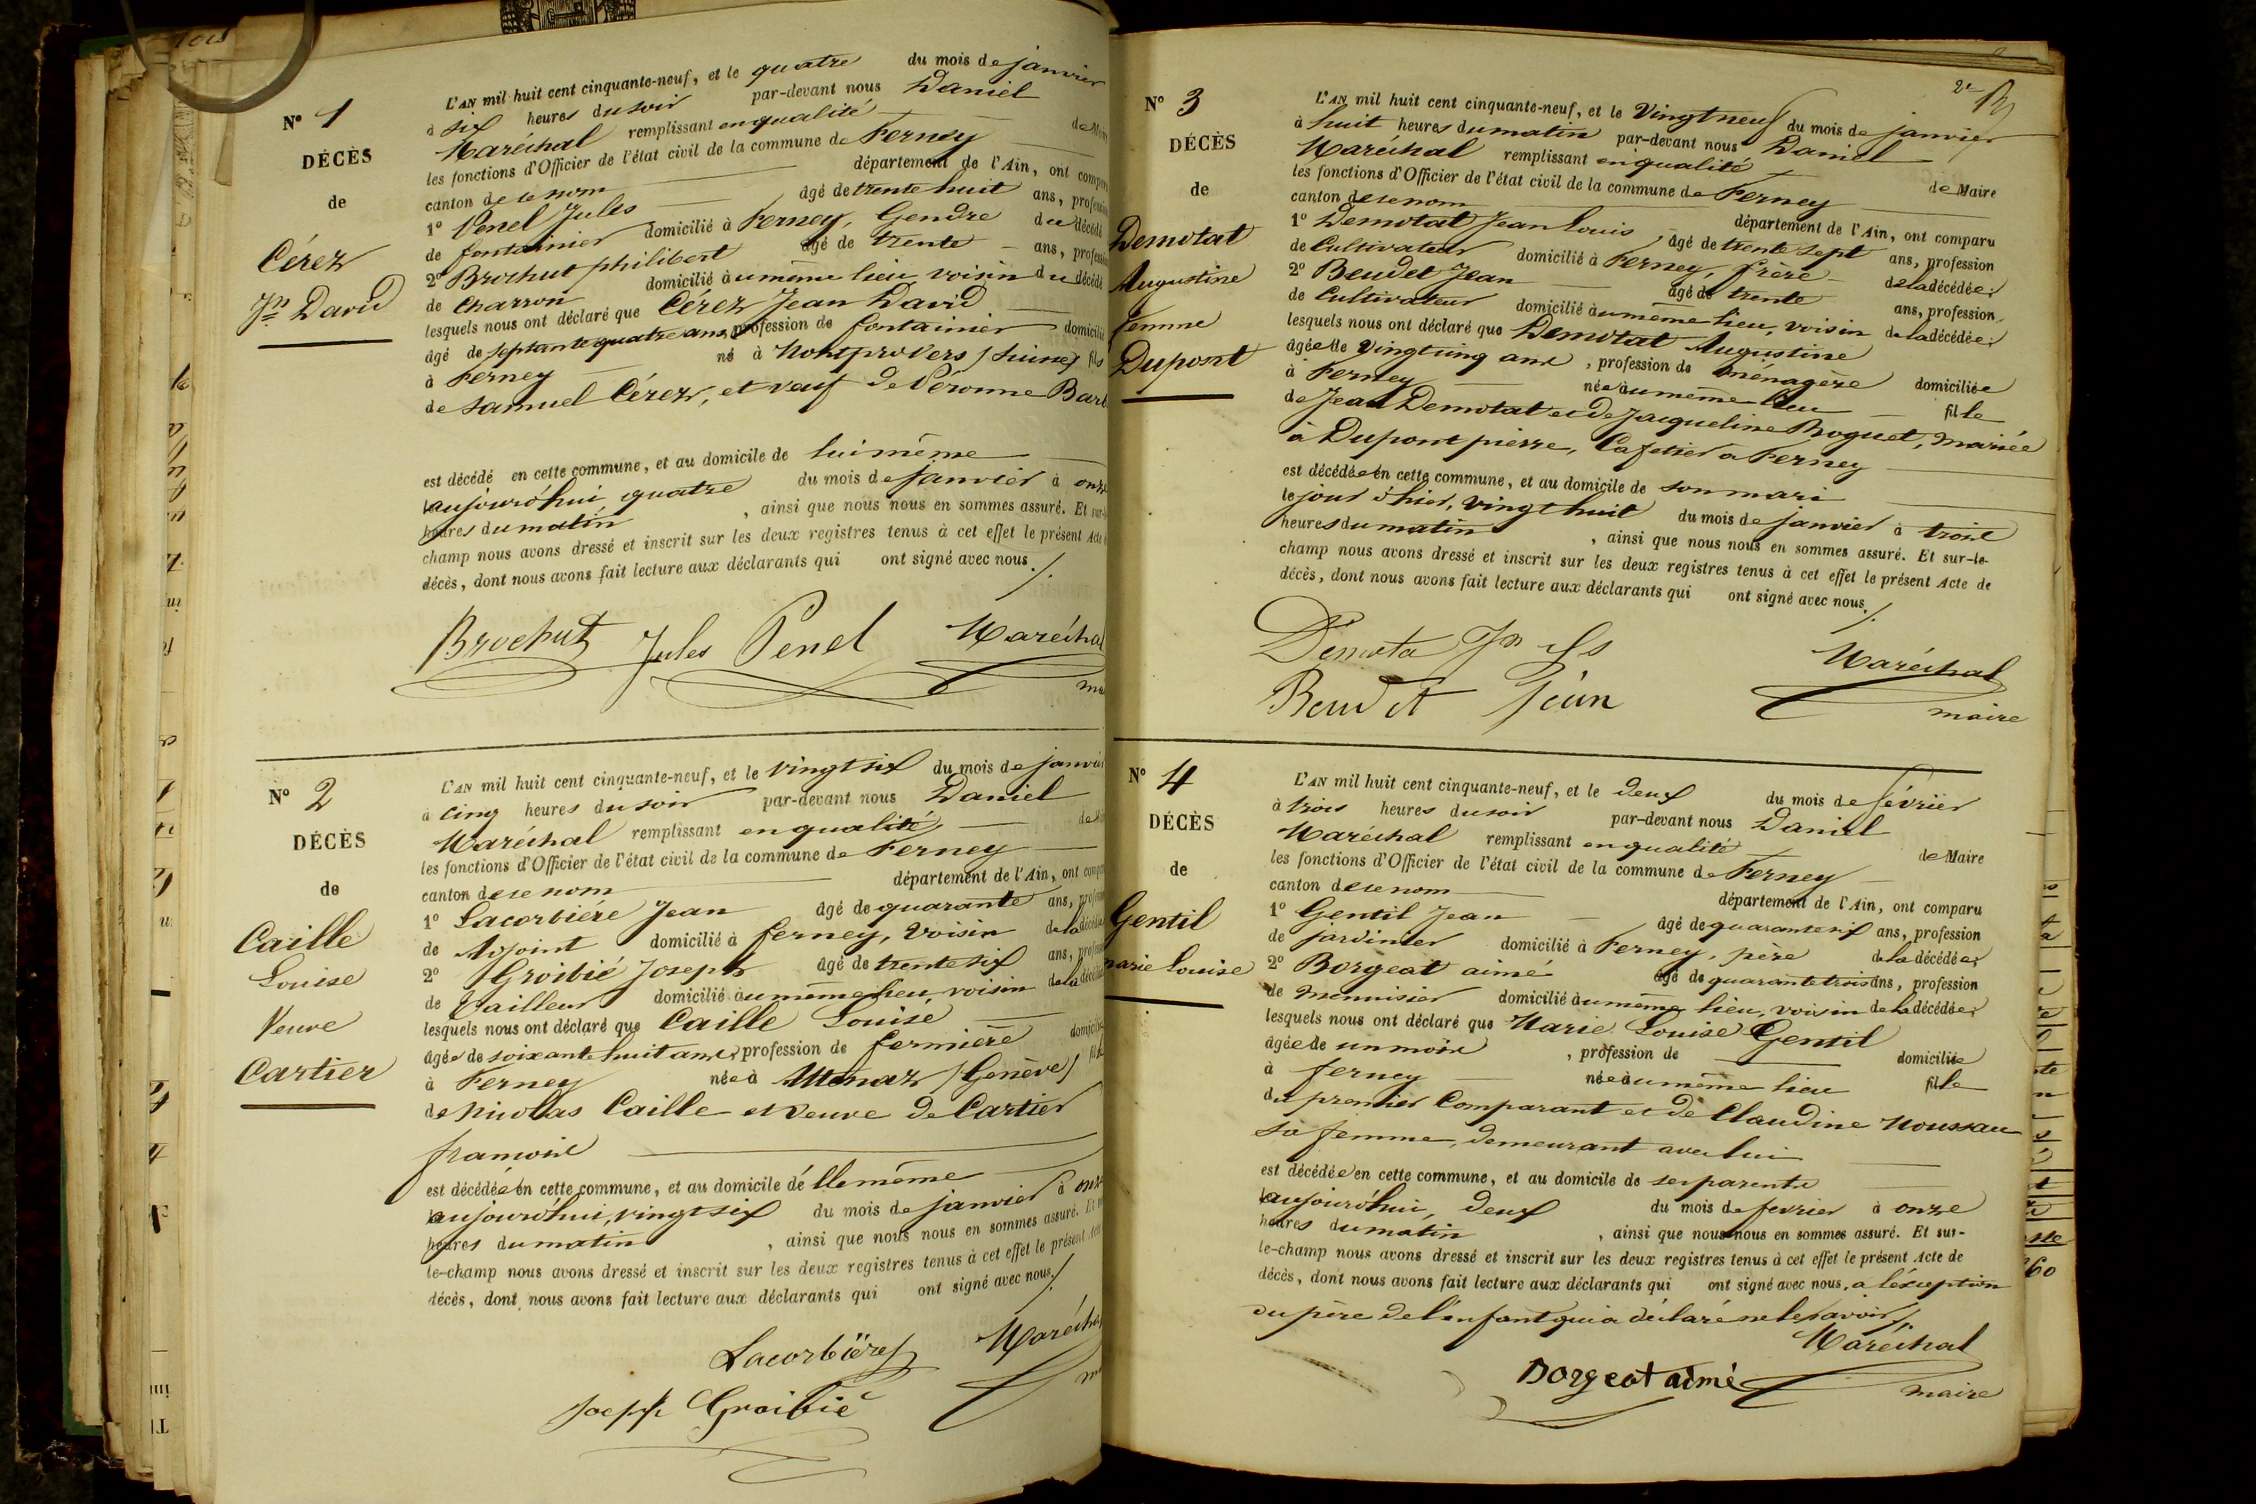 N° 1
DÉCÈS
de
Cérez
Jn David
L'AN mil huit cent cinquante-neuf, et le quatre du mois de janvier
à six heures du soir par-devant nous Daniel
Maréchal remplissant en qualité de Maire
les fonctions d'Officier de l'état civil de la commune de Ferney
canton de ce nom département de l'Ain, ont comparu
1° Penel Jules âgé de trente huit ans, profession
de fontainier domicilié à Ferney, Gendre du décédé
2° Brochut philibert âgé de trente ans, profession
de charron domicilié au même lieu, voisin du décédé
lesquels nous ont déclaré que Cérez Jean David
âgé de septante quatre ans, profession de fontainier domicilié
à Ferney né à (Suisse) fils
de Samuel Cérez, et veuf de Péronne
est décédé en cette commune, et au domicile de lui même
aujourd'hui quatre du mois de janvier à onze
heures du matin, ainsi que nous nous en sommes assuré. Et sur-le-
champ nous avons dressé et inscrit sur les deux registres tenus à cet effet le présent Acte de
décès, dont nous avons fait lecture aux déclarants qui ont signé avec nous ./.
Brochut Jules Penel Maréchal
N° 2
DÉCÈS
de
Caille
Louise
Veuve
Cartier
L'AN mil huit cent cinquante-neuf, et le vingt six du mois de janvier
à cinq heures du soir par-devant nous Daniel
Maréchal remplissant en qualité de Maire
les fonctions d'Officier de l'état civil de la commune de Ferney
canton de ce nom département de l'Ain, ont comparu
1° Lacorbière Jean âgé de quarante ans, profession
de Adjoint domicilié à ferney, voisin de la décédée
2° Groibié Joseph âgé de trente six ans, profession
de Tailleur domicilié au même lieu, voisin de la décédée
lesquels nous ont déclaré que Caille Louise
âgée de soixante huit ans, profession de fermière domiciliée
à Ferney née à (Genève) fille
de Nicolas Caille et veuve de Cartier
francois
est décédée en cette commune, et au domicile d'elle même
aujourd'hui, vingt six du mois de janvier à onze
heures du matin, ainsi que nous nous en sommes assuré. Et sur-
le-champ nous avons dressé et inscrit sur les deux registres tenus à cet effet le présent Acte
décès, dont nous avons fait lecture aux déclarants qui ont signé avec nous ./.
Lacorbière Maréchal
Joseph Groibié
N° 3
DÉCÈS
de
Demotat
Augustine
femme
Dupont
L'AN mil huit cent cinquante-neuf, et le Vingt neuf du mois de janvier
à huit heures du matin par-devant nous Daniel
Maréchal remplissant en qualité de Maire
les fonctions d'Officier de l'état civil de la commune de Ferney
canton de ce nom département de l'Ain, ont comparu
1° Demotat Jean Louis, âgé de trente sept ans, profession
de Cultivateur domicilié à Ferney, frère de la décédée;
2° Beudet Jean âgé de trente ans, profession
de Cultivateur domicilié au même lieu, voisin de la décédée;
lesquels nous ont déclaré que Demotat Augustine
âgée de vingt cinq ans, profession de ménagère domiciliée
à Ferney née au même lieu fille
de Jean Demotat et de Jacqueline Boguet, mariée
à Dupont pierre, Cafetier à Ferney
est décédée en cette commune, et au domicile de son mari
le jour d'hier, vingt huit du mois de janvier à trois
heures du matin, ainsi que nous nous en sommes assuré. Et sur-le-
champ nous avons dressé et inscrit sur les deux registres tenus à cet effet le présent Acte de
décès, dont nous avons fait lecture aux déclarants qui ont signé avec nous ./.
Demota Jn Ls Maréchal
Beudet Jean maire
N° 4
DÉCÈS
de
Gentil
marie Louise
L'AN mil huit cent cinquante-neuf, et le deux du mois de février
à trois heures du soir par-devant nous Daniel
Maréchal remplissant en qualité de Maire
les fonctions d'Officier de l'état civil de la commune de Ferney
canton de ce nom département de l'Ain, ont comparu
1° Gentil Jean âgé de quarante six ans, profession
de jardinier domicilié à Ferney, père de la décédée;
2° Borgeat aimé âgé de quarante trois ans, profession
de menuisier domicilié au même lieu, voisin de la décédée;
lesquels nous ont déclaré que Marie Louise Gentil
âgée de un mois, profession de domiciliée
à ferney née au même lieu fille
du premier Comparant et de Claudine Moussau
sa femme, demeurant avec lui
est décédée en cette commune, et au domicile de ses parents
aujourd'hui, deux du mois de fevrier à onze
heures du matin, ainsi que nous nous en sommes assuré. Et sur-
le-champ nous avons dressé et inscrit sur les deux registres tenus à cet effet le présent Acte de
décès, dont nous avons fait lecture aux déclarants qui ont signé avec nous, a l'éxception
du père de l'enfant qui a déclaré ne le savoir ./.
Maréchal
Borgeat aimé maire